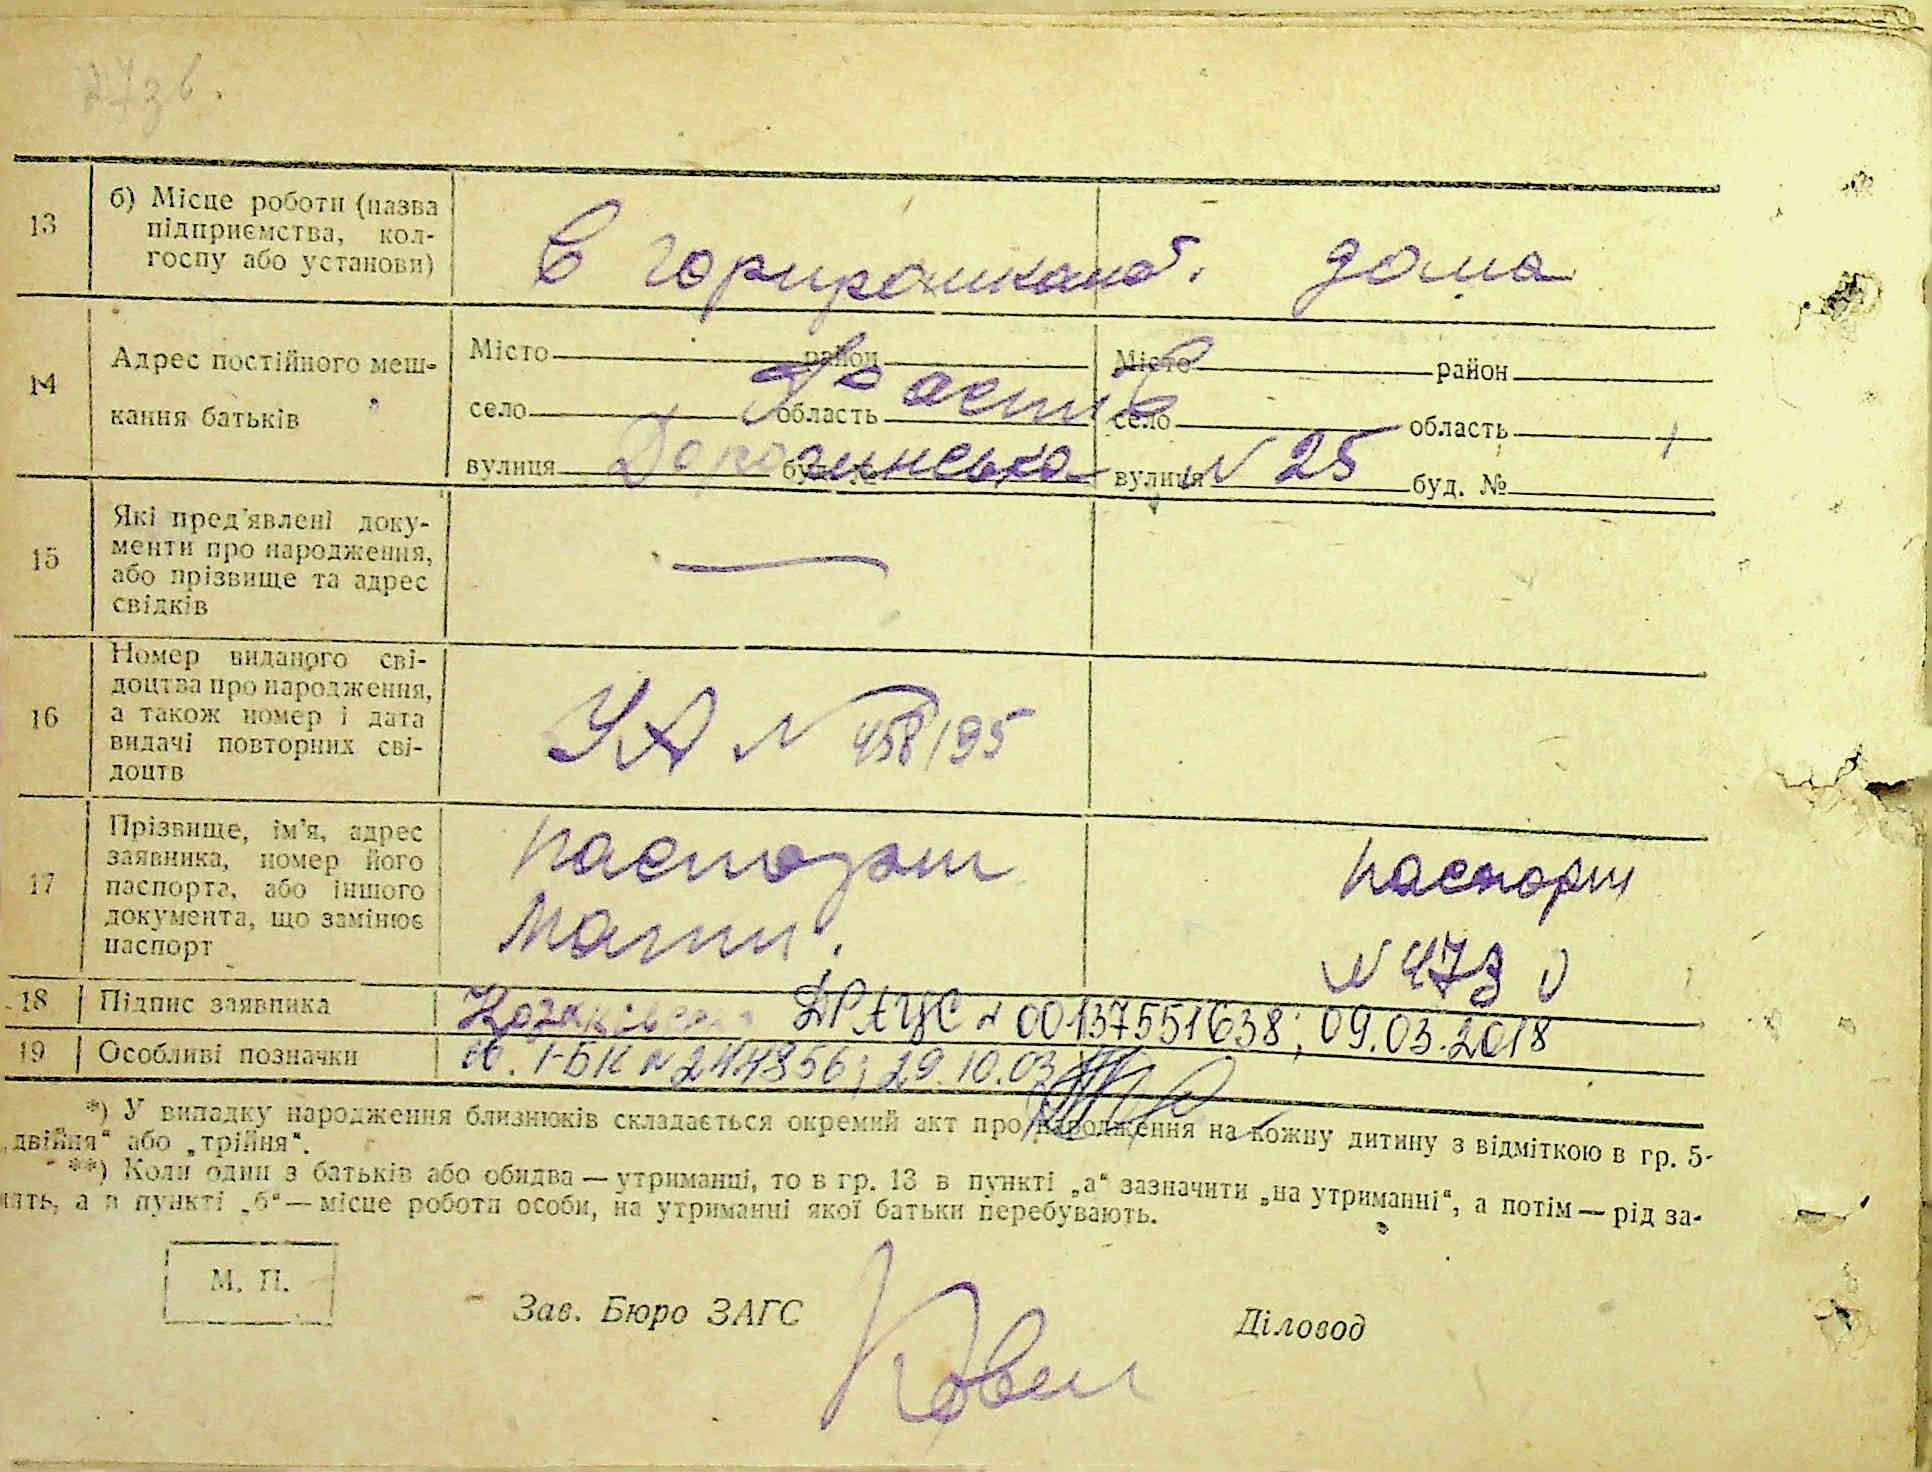 27зв.
13
б) Місце роботи (назва
підприємства, кол-
госпу або установи)
В
дома
14
Адрес постійного меш-
кання батьків
Місто район
село область
вулиця буд.
Місто район
село область
вулиця буд. №
Фастів
N 25
15
Які пред'явлені доку-
менти про народження,
або прізвище та адрес
свідків
—
16
Номер виданого сві-
доцтва про народження,
а також номер і дата
видачі повторних сві-
доцтв
УА N 458/95
17
Прізвище, ім'я, адрес
заявника, номер його
паспорта, або іншого
документа, що замінює
паспорт
паспорт
мати.
паспорт
N 473
18
Підпис заявника
ДРАЦС N 00137551638; 09.03.2018
19
Особливі позначки
І-БК N 244856; 29.10.03
*) У випадку народження близнюків складається окремий акт про народження на кожну дитину з відміткою в гр. 5-
„двійня“ або „трійня“.
**) Коли один з батьків або обидва — утриманці, то в гр. 13 в пункті „а“ зазначити „на утриманні“, а потім — рід за-
нять, а в пункті „б“ — місце роботи особи, на утриманні якої батьки перебувають.
М. П.
Зав. Бюро ЗАГС
Діловод